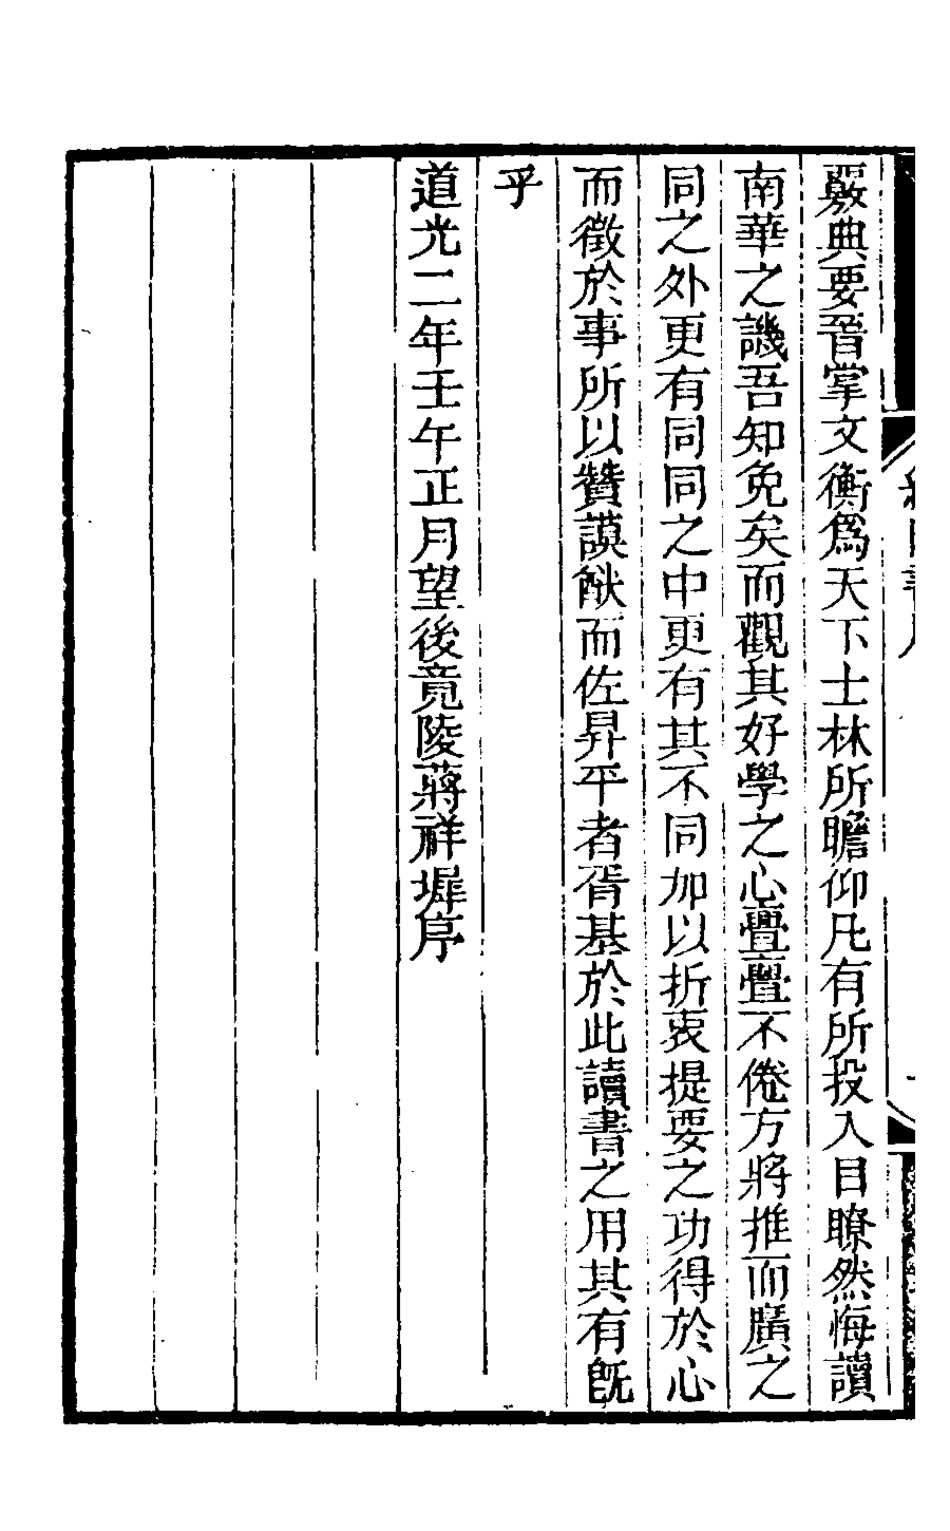 覈典要晉掌文衡爲天下士林所瞻仰凡有所投入目瞭然悔讀
南華之譏吾知免矣而觀其好學之心亹亹不倦方將推而廣之
同之外更有同同之中更有其不同加以折衷提要之功得於心
而徵於事所以贊謨猷而佐昇平者胥基於此讀書之用其有旣
乎
道光二年壬午正月望後竟陵蔣祥墀序